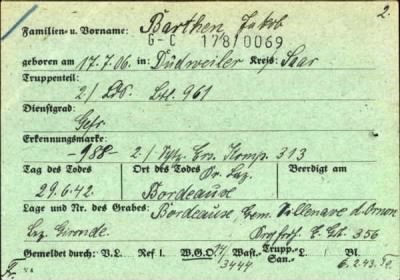 2.
Familien- u. Vorname: Barthen, Jakob
G-C 178/0069
geboren am 17.7.06. in: Dudweiler Kreis: Saar
Truppenteil:
2/ Lds. Btl. 961
Dienstgrad:
Gefr.
Erkennungsmarke:
-988- 2./ Ers. Komp. 313
Tag des Todes Ort des Todes Beerdigt am
29.6.42. Bordeause
Lage und Nr. des Grabes: Bordeause, Gem. Villenave d. Ornon
Gironde 356
Gemeldet durch: V.L. Ref I. W.G.O. 14/3444 Wast.- Trupp.- San.- /L Bl.
6.2.43.